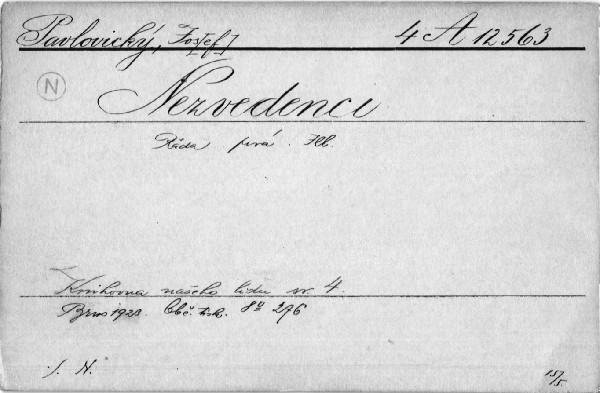 Pavlovický, Jos[ef]
4 A 12563
N
Nezvedenci
Řada prvá. Ill.
Knihovna našeho lidu sv. 4.
Brno 1923. Obč. tisk. 8° 276
J. N.
15/5.